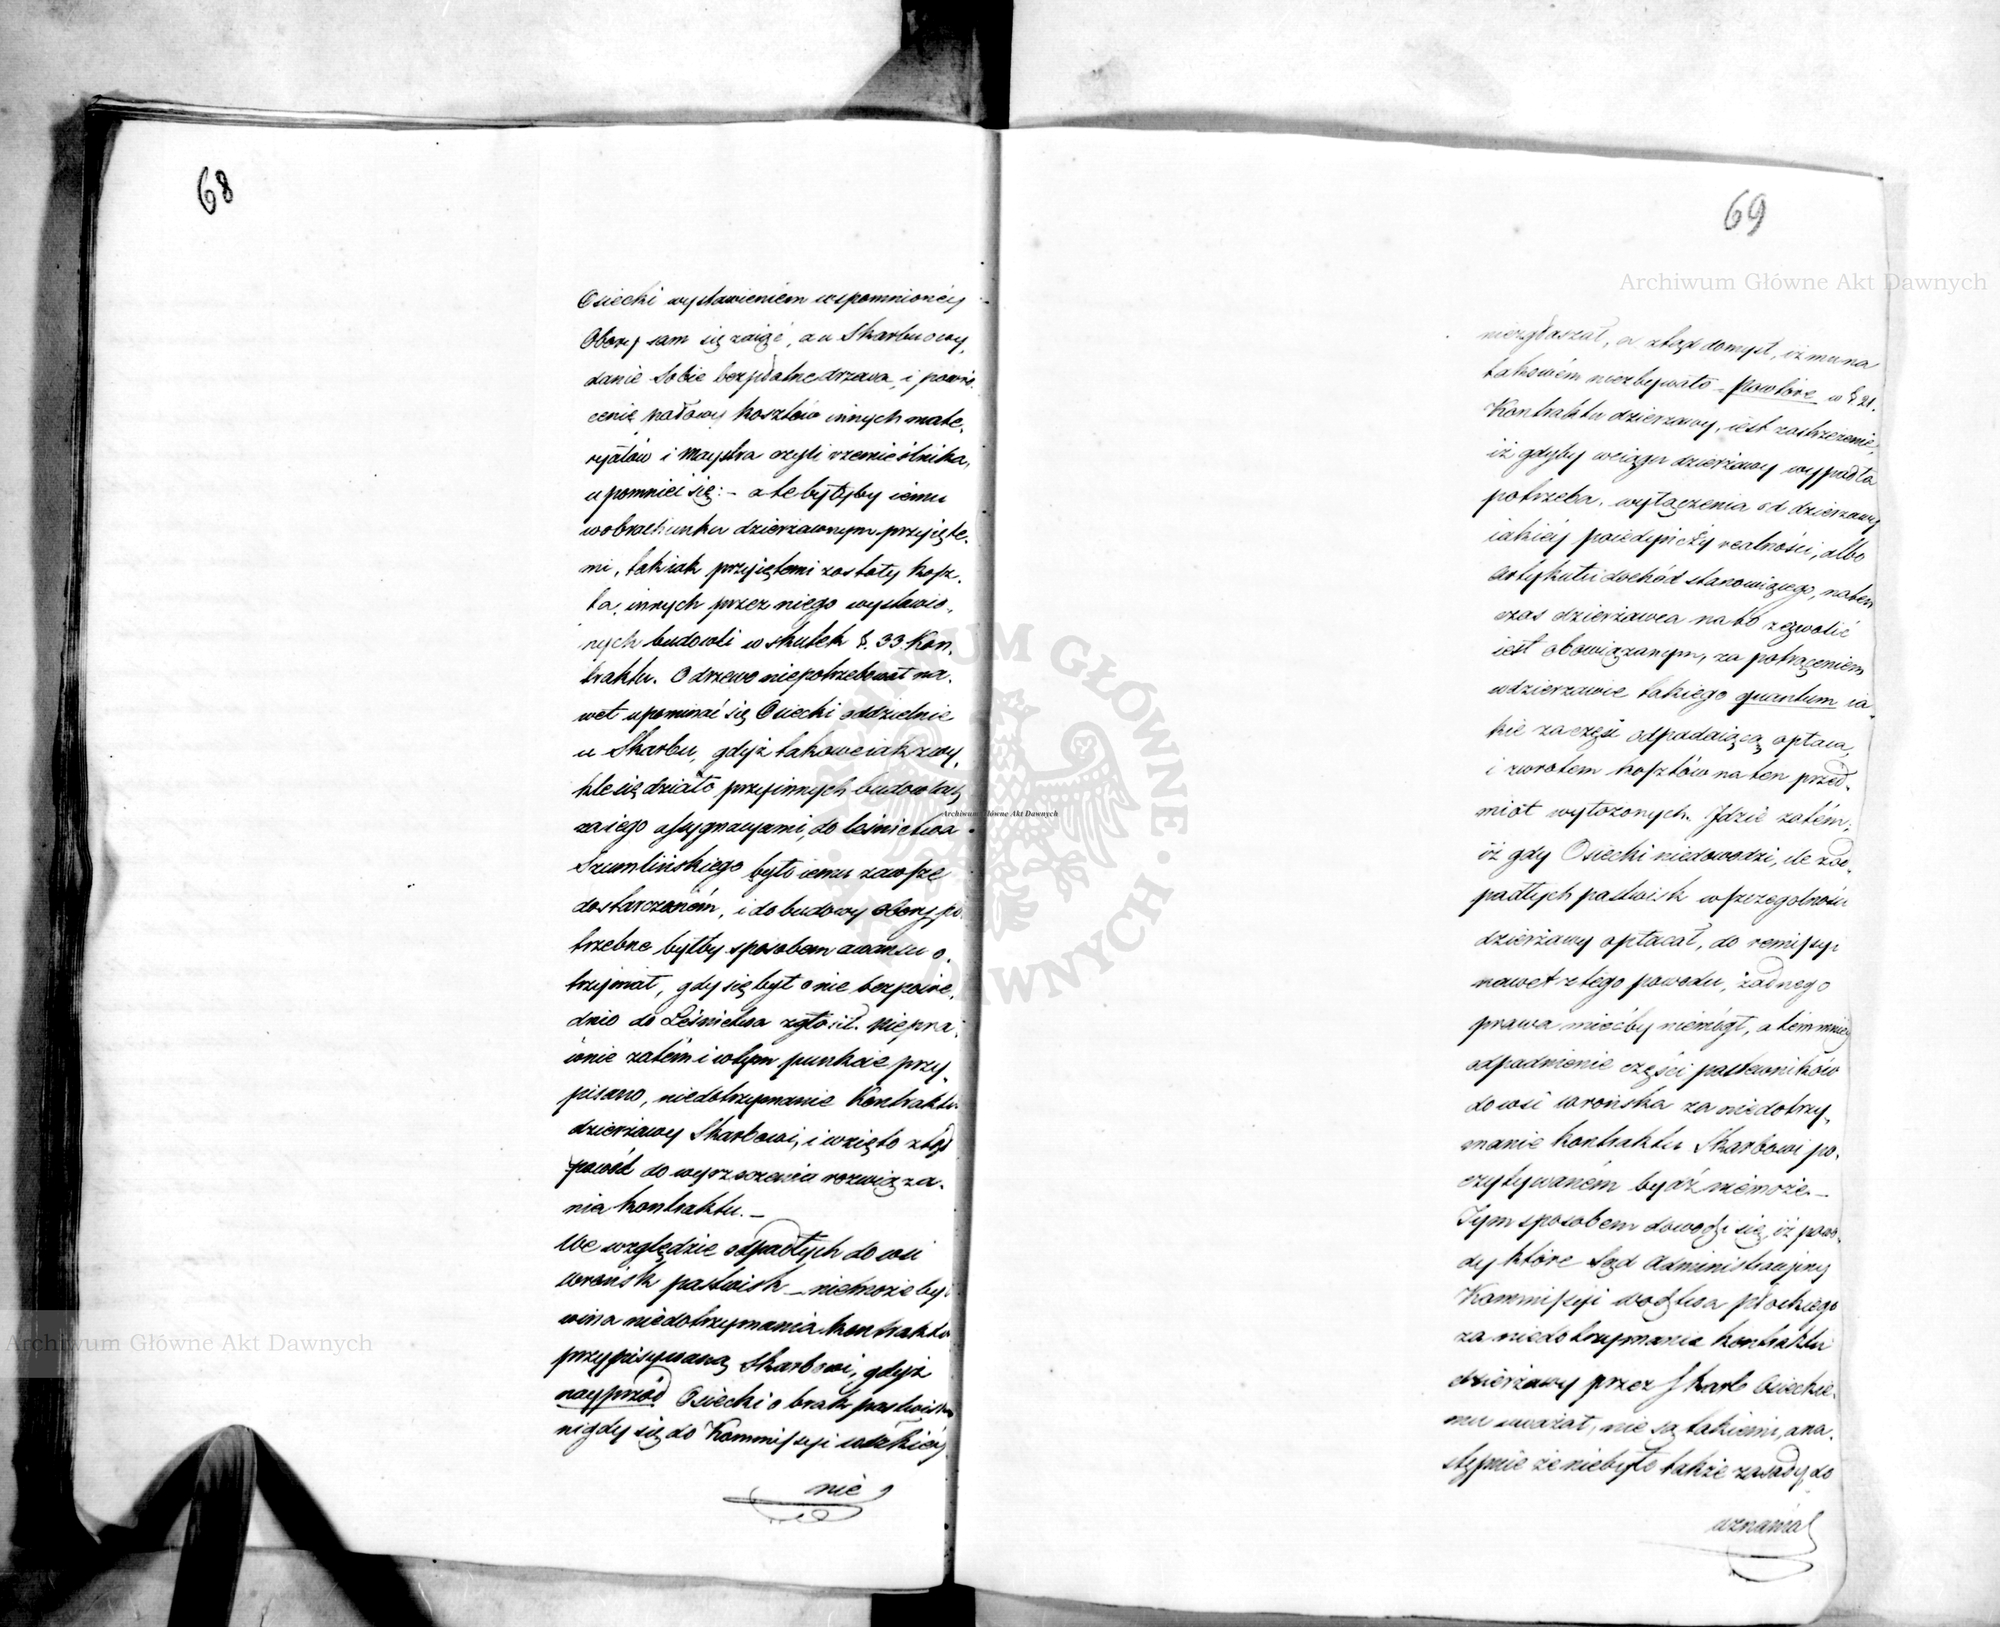 68
Osiecki wystawieniem wspomnionéy
Obory sam się zaiąć, a u Skarbu o wy,
danie sobie bezpłatne drzewa, i powró,
cenie połowy kosztów innych mate,
ryałów i Maystra czyli rzemieślnika,
upomnieć się: – a te byłyby iemu
w obrachunku dzierżawnym przyięte,
mi, tak iak przyiętemi zostały kosz,
ta, innych przez niego wystawio,
nych budowli w skutek §. 33. Kon,
traktu. O drzewo niepotrzebował na,
wet upominać się Osiecki oddzielnie
u Skarbu, gdyż takowe iak zwy,
kle się działo przy innych budowlach
za iego assygnacyami, do leśnictwa
Szumlińskiego było iemu zawsze
dostarczaném, i do budowy obory po,
trzebne byłby sposobem awansu o,
trzymał, gdy się był o nie bezpośre,
dnio do Leśnictwa zgłosił. Niepra,
wnie zatém i w tym punkcie przy,
pisano, niedotrzymanie Kontraktu
dzierżawy Skarbowi, i wzięto ztąd
powód do wyrzeczenia rozwiąza,
nia kontraktu. –
We względzie odpadłych do wsi
Wrońsk pastwisk – niemoże być
wina niedotrzymania kontraktu
przypisywaną Skarbowi, gdyż
nayprzód Osiecki o brak pastwisk
nigdy się do Kommissyi wdzkiéy
nie
69
niezgłaszał, a ztąd domysł, iż mu na
takowém niezbywało – Powtóre w § 21.
Kontraktu dzierżawy, iest zastrzeżenie,
iż gdyby wciągu dzierżawy wypadła
potrzeba, wyłączenia od dzierżawy
iakiéy poiedyńczéy realności, albo
artykułu dochód stanowiącego, naten
czas dzierżawca na to zezwolić
iest obowiązanym, za potrąceniem
w dzierżawie takiego quantum ia,
kie za część odpadaiącą opłaca,
i zwrotem kosztów na ten przed,
miot wyłożonych. Idzie zatém,
iż gdy Osiecki niedowodzi, ile z od,
padłych pastwisk w szczególności
dzierżawy opłacał, do remissyi
nawet z tego powodu, żadnego
prawa miećby niemógł, a tém mniéy
odpadnienie części pastewników
do wsi Wrońska za niedotrzy,
manie kontraktu Skarbowi po,
czytywaném bydź niemoże. –
Tym sposobem dowodzi się, iż powo,
dy które Sąd Administracyiny
Kommissyi wodztwa Płockiego
za niedotrzymanie kontraktu
dzierżawy przez Skarb Osieckie,
mu uważał, nie są takiemi, a na,
stępnie że niebyło także zasady do
uznania